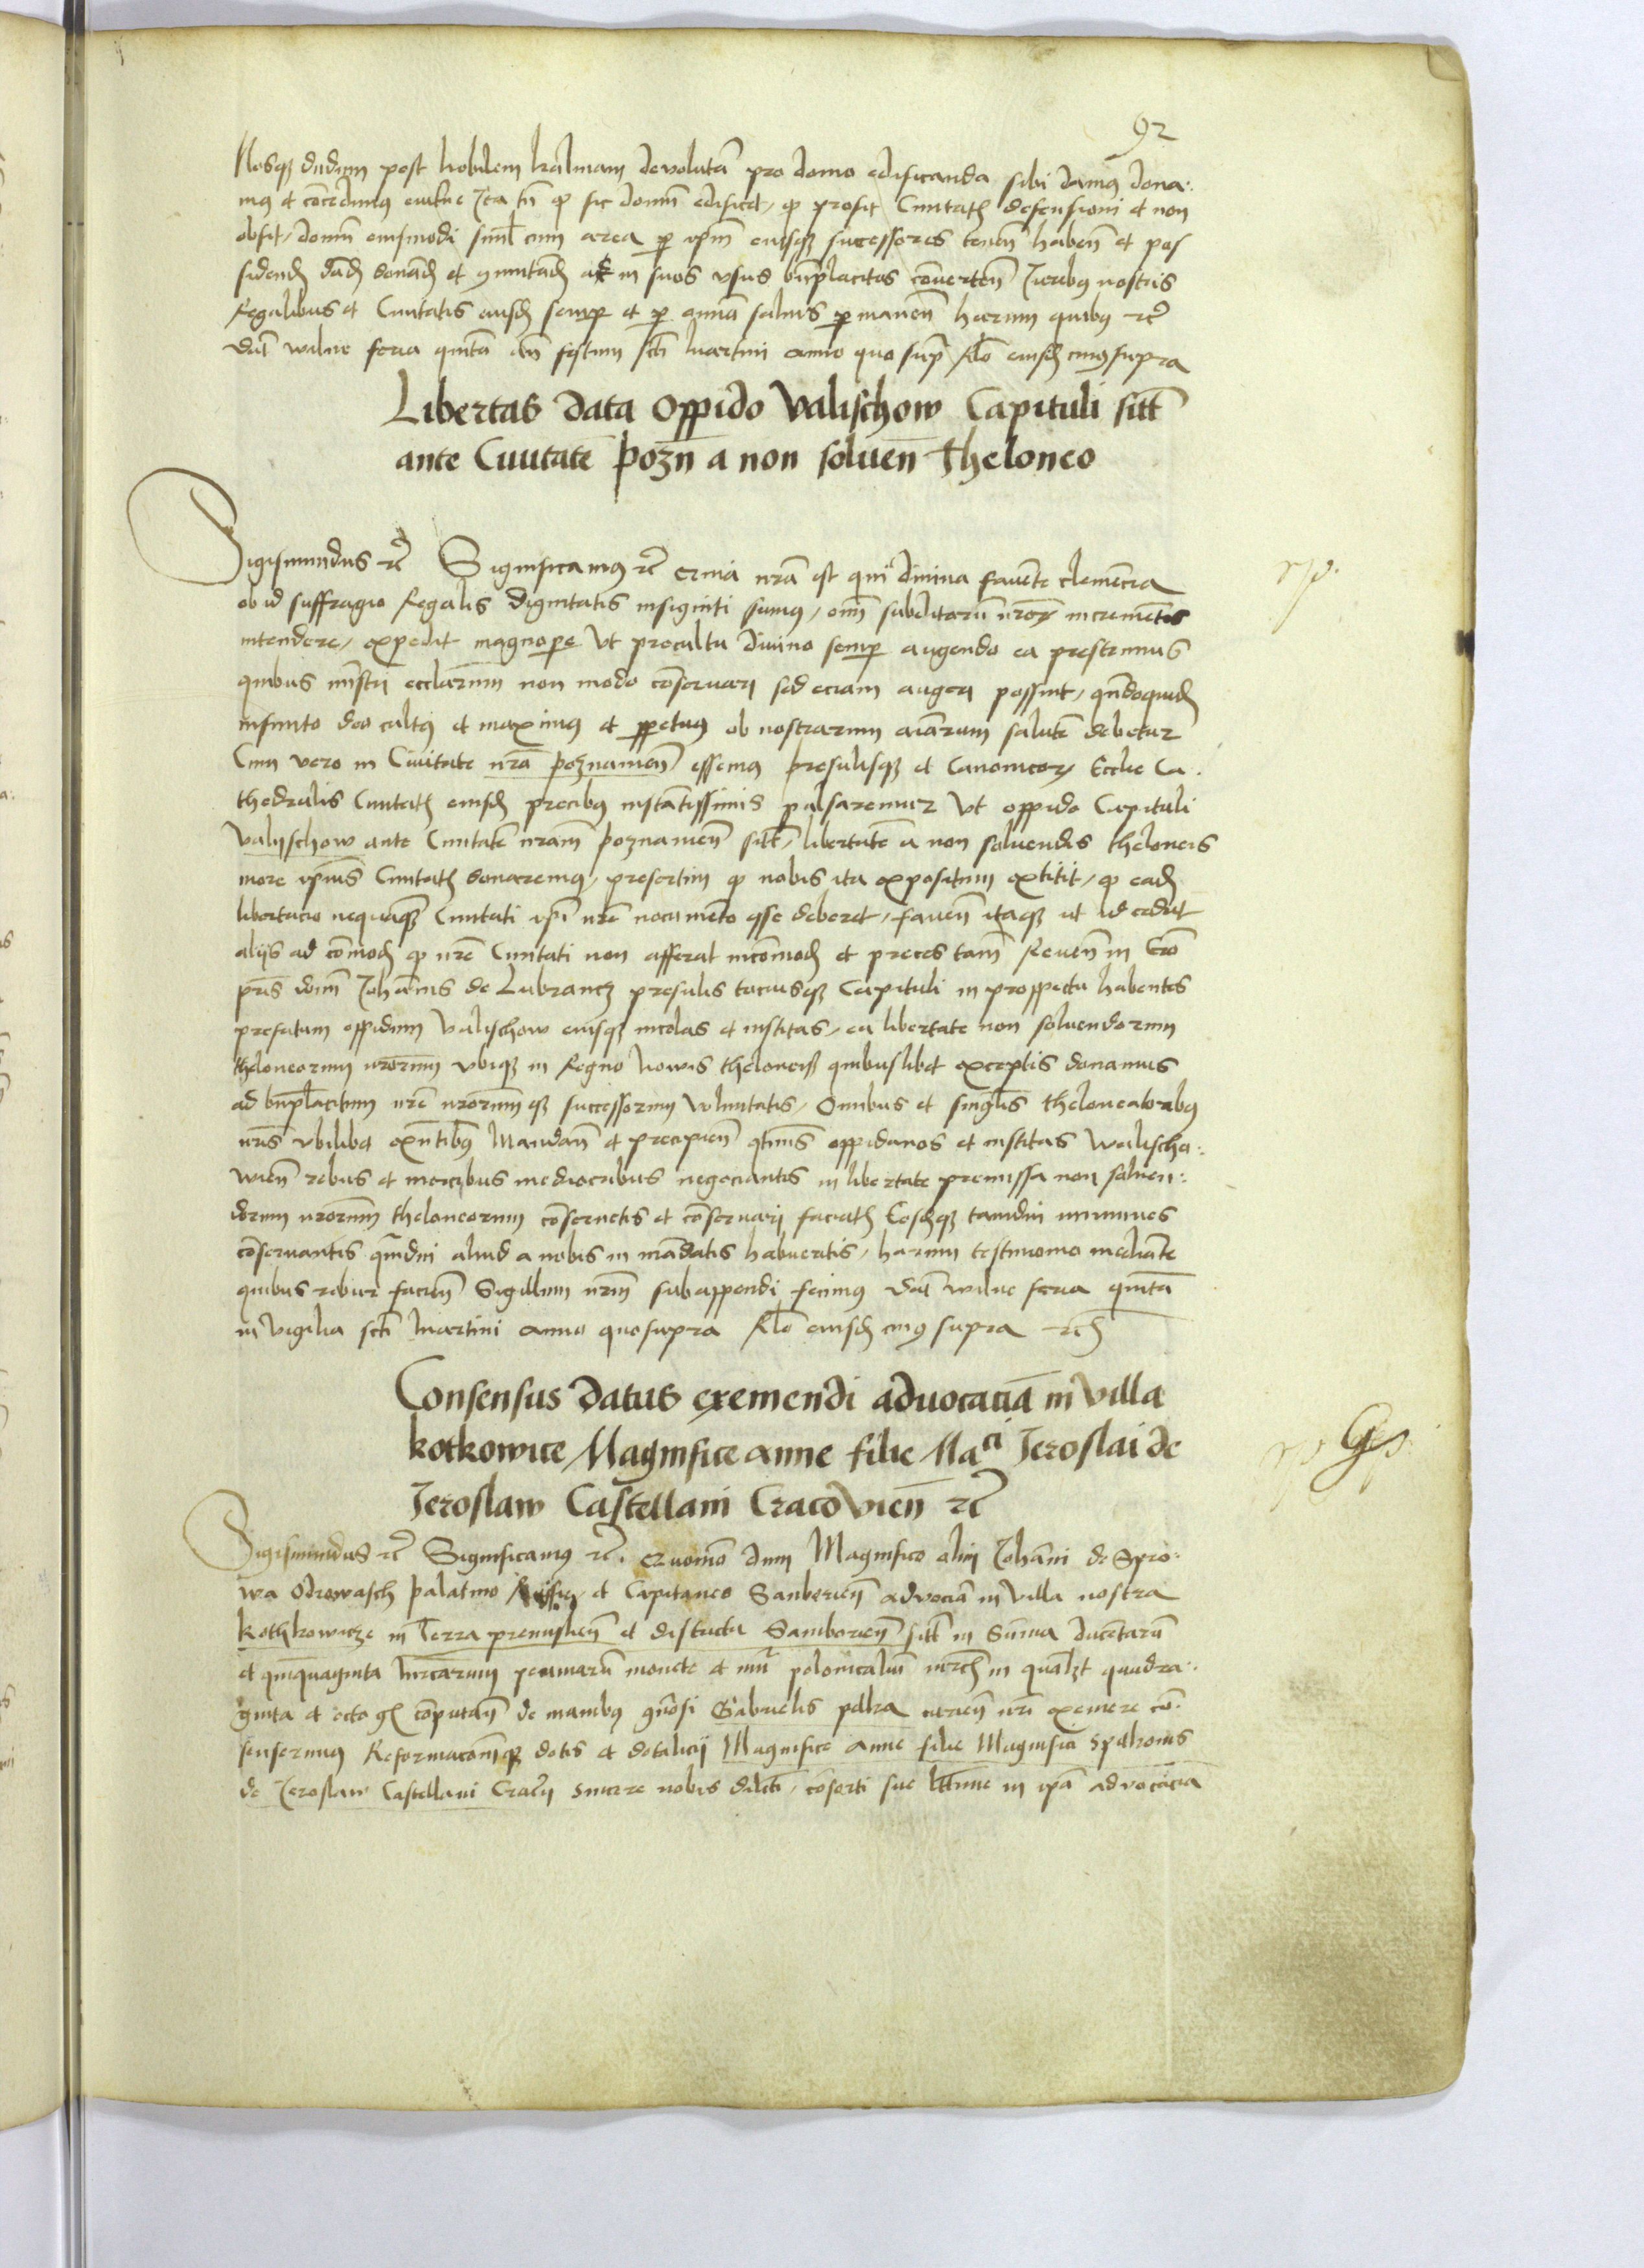 92
Nosq dudum post Nobilem devolutā pro domo edificanda sibi damus dona:
mus et cōcedimus Ita tn̄ q sic domū edificet, q prosit Civitatis defensioni et non
obsit, domū eiusmodi siml cum area p ipm̄ eiusq successores tenēn habēn et pos
sidend dād donād et ac in suos usus bn̄placitos cōvertēn Iuribus nostris
Regalibus et Civitatis eiusd semp et p omnia salvis pmanēn harum quibus etc̄
Dat wilne feria quinta an̄ festum sctī Martini anno quo supra Rlō eiusd cuius supra
Libertas data Oppido Valischow Capituli sitt̄
ante Civitatē pozn̄ a non solvēn theloneo
Sigismundus etc̄ Significamus etc̄ nrā est qui divina favēte clemēcia
ob id suffragio Regalis dignitatis insigniti sumus, om̄ subditorū nrōrum incremētis
intendere, expedit magnope Ut procultu divino semp augendo ea prestemus
quibus mīstri ecclārum non modo cōservari sed eciam augeri possint, qn̄doquid
infinito deo cultus et maximus et ppetuus ob nostrarum aīarum salutē debetur
Cum vero in Civitate nrā poznanien̄ essemus presulisq et Canonicorum Ecclie Ca:
thedralis Civitatis eiusd precibus instātissimis pulsaremur Ut oppido Capituli
Valischow ante Civitatē nrām poznanien̄ sitt̄, libertatē a non solvendis theloneis
more ipsius Civitatis donaremus, presertim q nobis ita expositum extitit, q ead
libertacio nequaq Civitati ipī nrē nocumēto esse deberet, favēn itaq ut id cedat
alijs ad cōmod q nrē Civitati non afferat incōmod et preces tam Reveren in Cro
pris dnī Johānis de Lubrancz presulis tociusq Capituli in prospectu habentes
prefatum oppidum Valischow eiusq incolas et institas, ea libertate non solvendorum
theloneorum nrorum ubiq in Regno novis theloneis quibuslibet exceptis donamus
ad bn̄placitum nrē nrorumq successorum voluntatis, Omnibus et singulis theloneatoribus
nrīs ubilibet exn̄tibus Mandan̄ et precipien̄ qtinus oppidanos et institas Walischo:
wien̄ rebus et mercibus mediocribus negociantes in libertate premissa non solven:
dorum nrorum theloneorum cōservetis et cōservari faciatis Eosdq tamdiu immunes
cōservantes qmdiu aliud a nobis in mādatis habueritis, harum testimonio mediante
quibus robur Sigillum nrm̄ subappendi fecimus Dat wilne feria quinta
in vigilia sctī Martini anno quo supra Rlō eiusd cuius supra etc̄
Consensus datus exemendi advocaciā in villa
kotkowice Magnifice anne filie Maci Jeroslai de
Jeroslaw Castellani Cracovien̄ etc̄
Sigismundus etc̄ Significamus etc̄. dum Magnifico olim Johāni de Spro:
wa Odrowasch palatino Russie et Capitaneo Samborien̄ advociā in villa nostra
kothkowicze in Terra premislien̄ et districtu Samborien̄ sitt̄ in Sūma ducētarū
et quinquaginta Mrcarum pecuniarū monete et polonicalium in qualibet quadra:
ginta et octo gs cōputān de manibus gn̄osi Gabrielis exemere cō:
senserimus Reformacōemq dotis et dotalicij Magnifice anne filie Magnifici Spithonis
de Jeroslaw Castellani sincere nobis dilecti, cōsorti sue in ipā advocacia